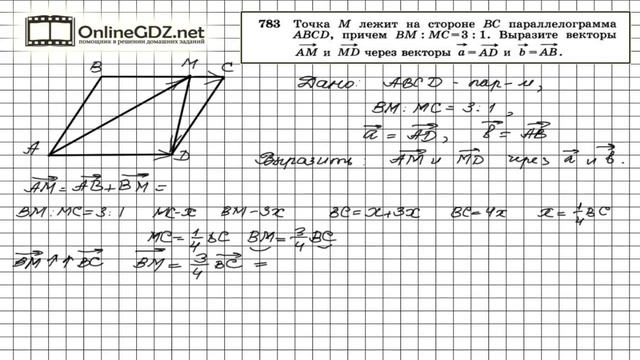 OnlineGDZ.net
помощника в решении домашних заданий
783 Точка M лежит на стороне BC параллелограмма
ABCD, причем BM : MC = 3 : 1. Выразите векторы
AM и MD через векторы a = AD и b = AB.
B M C
A D
Дано: ABCD - пар-м,
BM : MC = 3 : 1,
a = AD, b = AB
Выразить: AM и MD через a и b.
AM = AB + BM =
BM : MC = 3 : 1 MC - x BM - 3x BC = x + 3x BC = 4x x = 1/4 BC
MC = 1/4 BC BM = 3/4 BC
BM ↑↑ BC BM = 3/4 BC =